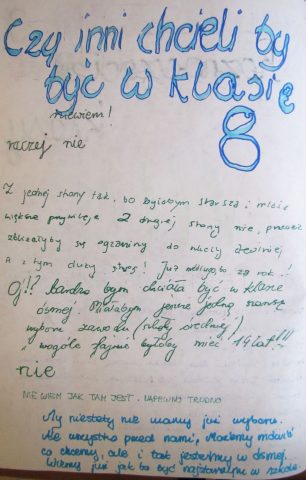 Czy inni chcieli by
być w klasie
8
niewiem!
raczej nie
Z jednej strony tak, bo byłabym starsza i miała
większe przywileje z drugiej strony nie, ponieważ
zbliżałyby się egzaminy do
A z tym duży stres! Już za rok...!
Oj!? bardzo bym chciała być w klasie
ósmej. Miałabym jeszcze jedną szansę
wyboru zawodu (szkoły średniej)
i wogóle fajnie byłoby mieć 14 lat!!!
nie
NIE WIEM JAK TAM JEST. NAPEWNO TRUDNO
My niestety nie mamy już wyboru.
Ale wszystko przed nami, Możemy mówić
co chcemy, ale i tak jesteśmy w ósmej.
Wiemy już jak to być najstarszym w szkole.